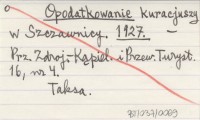 Opodatkowanie kuracjuszy
w Szczawnicy. 1927. –
Prz. Zdroj.-Kąpiel. i Przew. Turyst.
16, nr 4.
Taksa.
70/037/0009